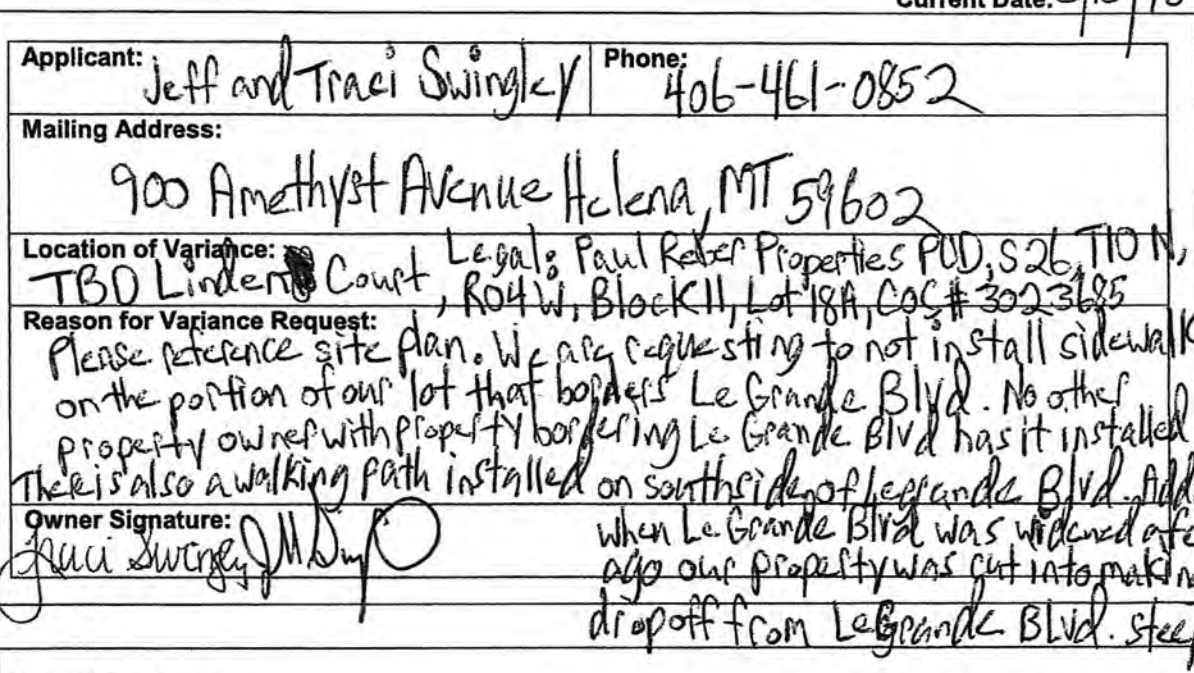 Current Date:
Applicant: Jeff and Traci Swingley Phone: 406-461-0852
Mailing Address:
900 Amethyst Avenue Helena, MT 59602
Location of Variance: Legal: Paul Reber Properties PUD, S26, T10 N,
TBD Linden Court, R04W, Block 11, Lot 18A, COS# 3023685
Reason for Variance Request:
Please reference site plan. We are requesting to not install sidewalk
on the portion of our lot that borders Le Grande Blvd. No other
property owner with property bordering Le Grande Blvd has it installed
There is also a walking path installed on southside of Legrande Blvd. Add
Owner Signature: when Le Grande Blvd was widened a fe
Traci Swingley ago our property was cut into makin
dropoff from LeGrande BLvd. steep